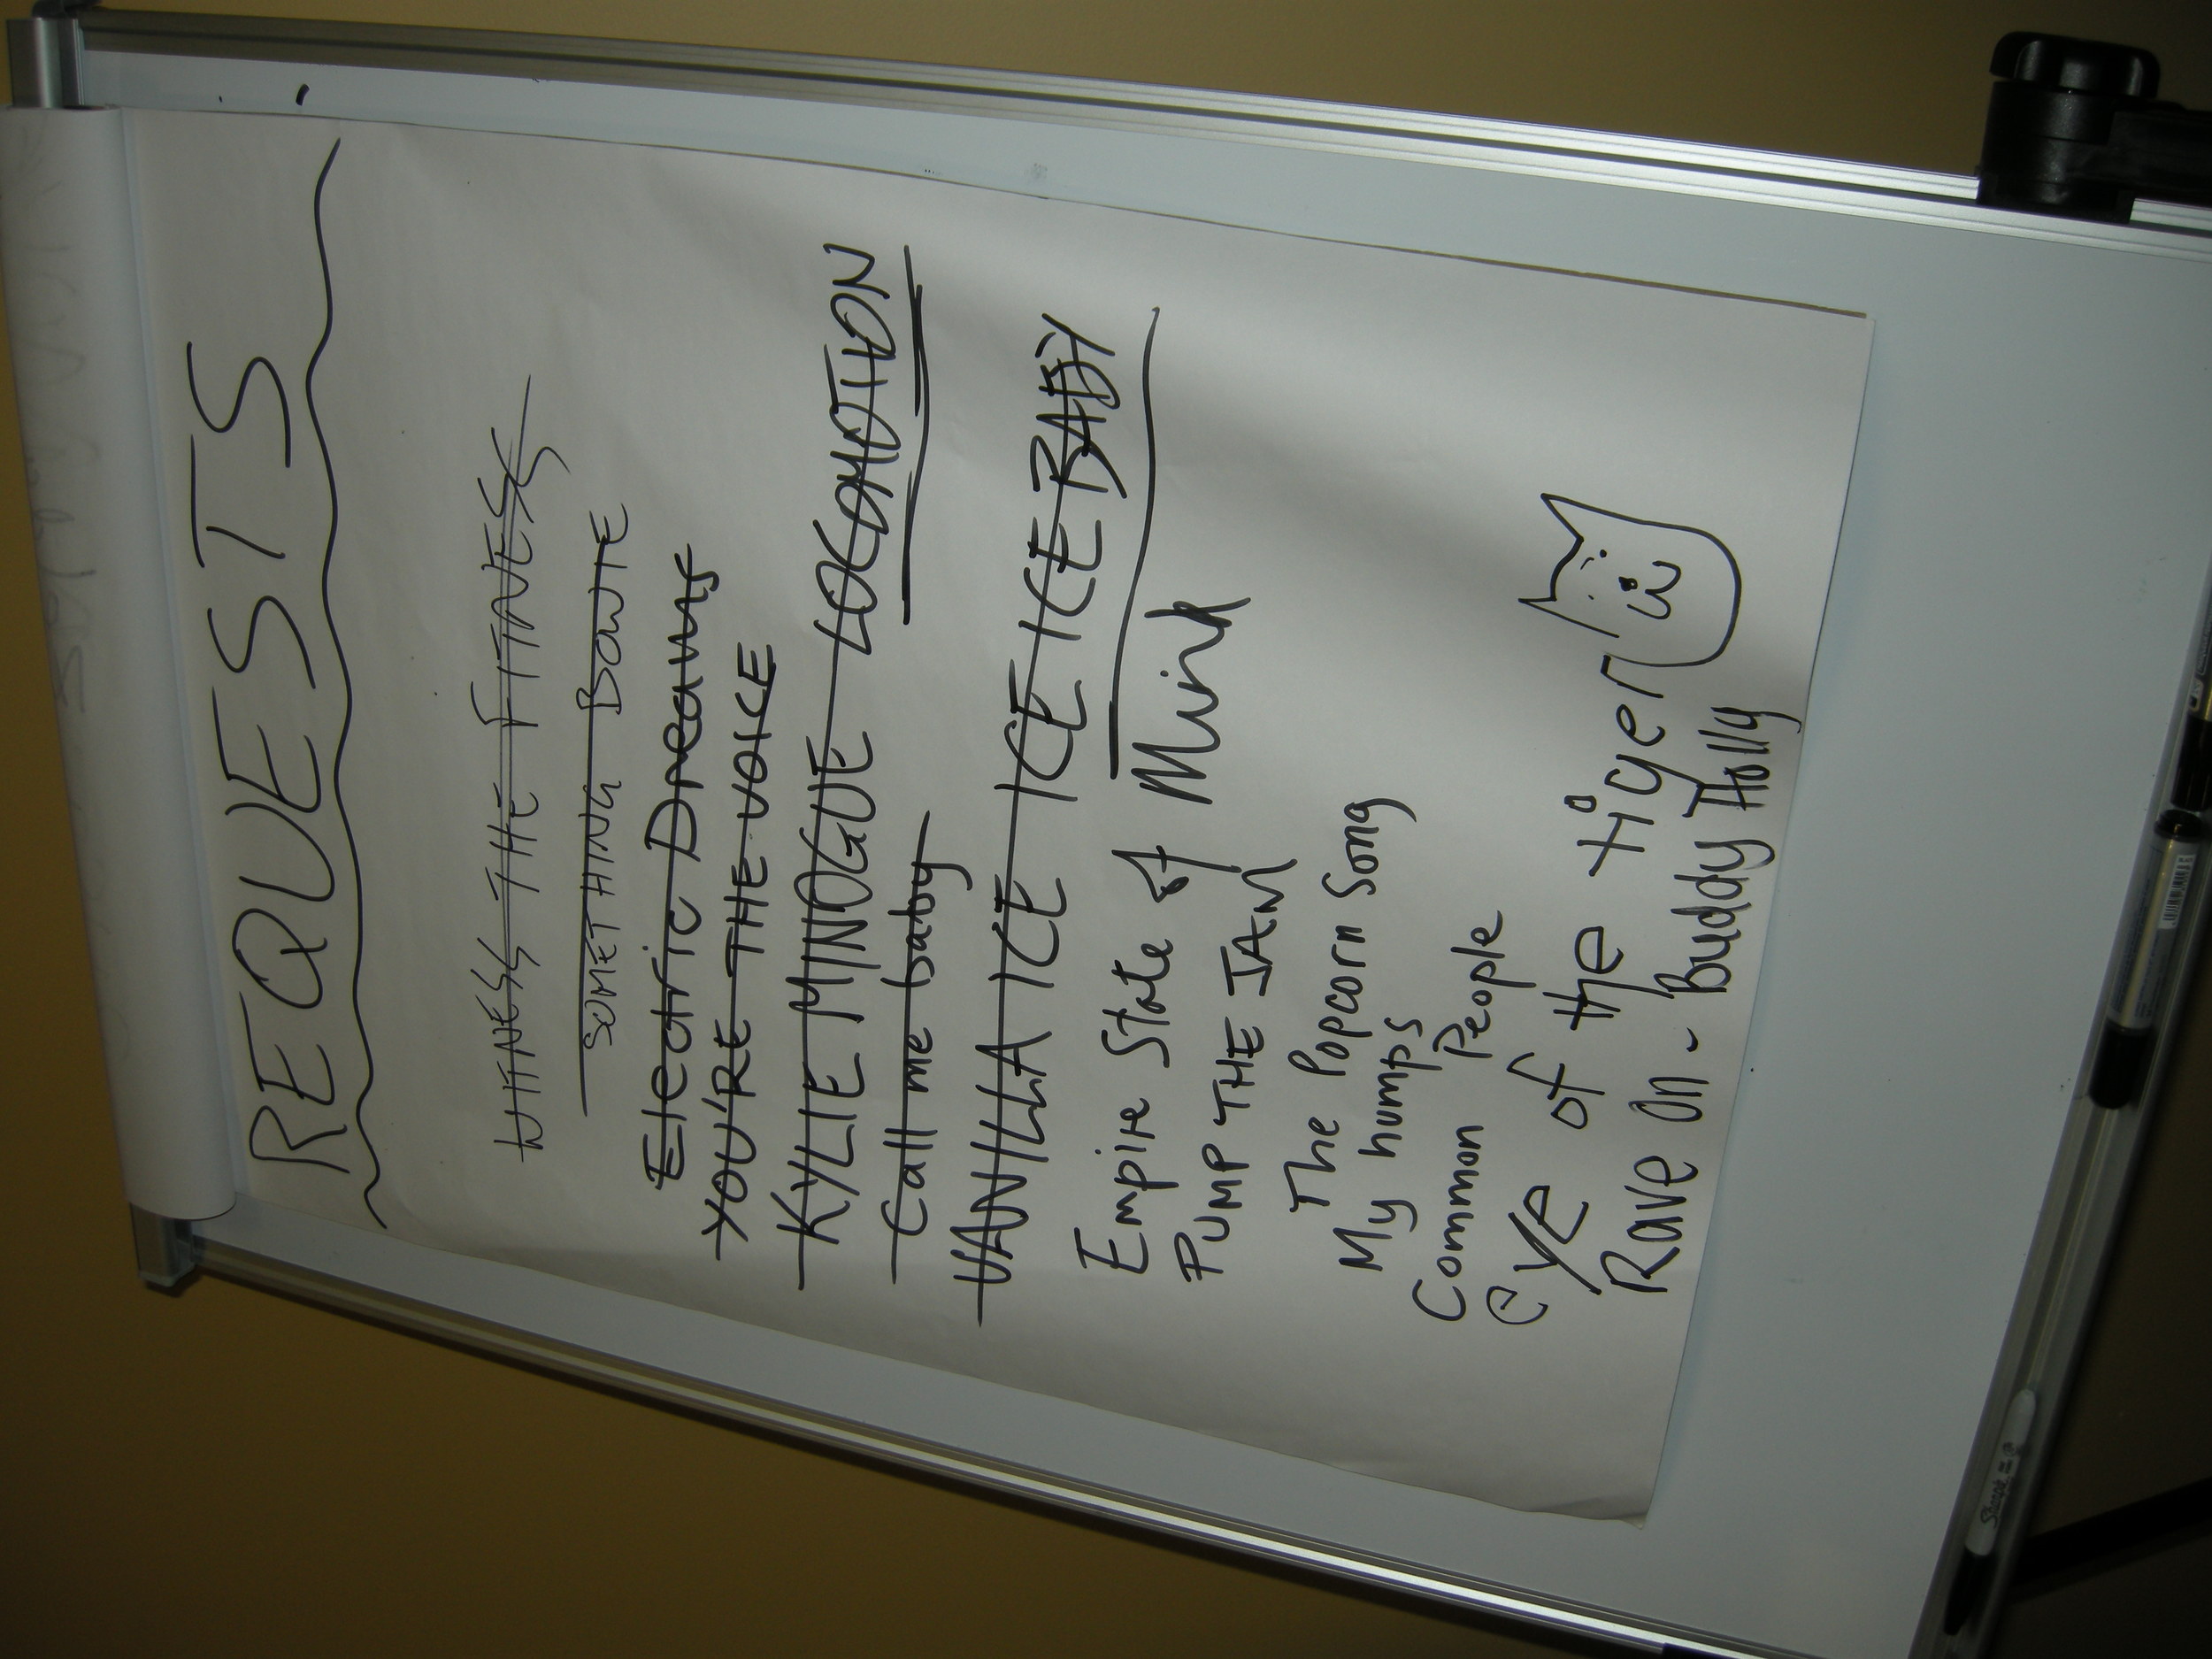 REQUESTS
WITNESS THE FITNESS
SOMETHING BOWIE
Electric Dreams
YOU'RE THE VOICE
KYLIE MINOGUE LOCOMOTION
Call me baby
VANILLA ICE ICE ICE BABY
Empire State of Mind
PUMP THE JAM
The Popcorn Song
My humps
Common People
eye of the tiger
Rave On - Buddy Holly
Sharpie